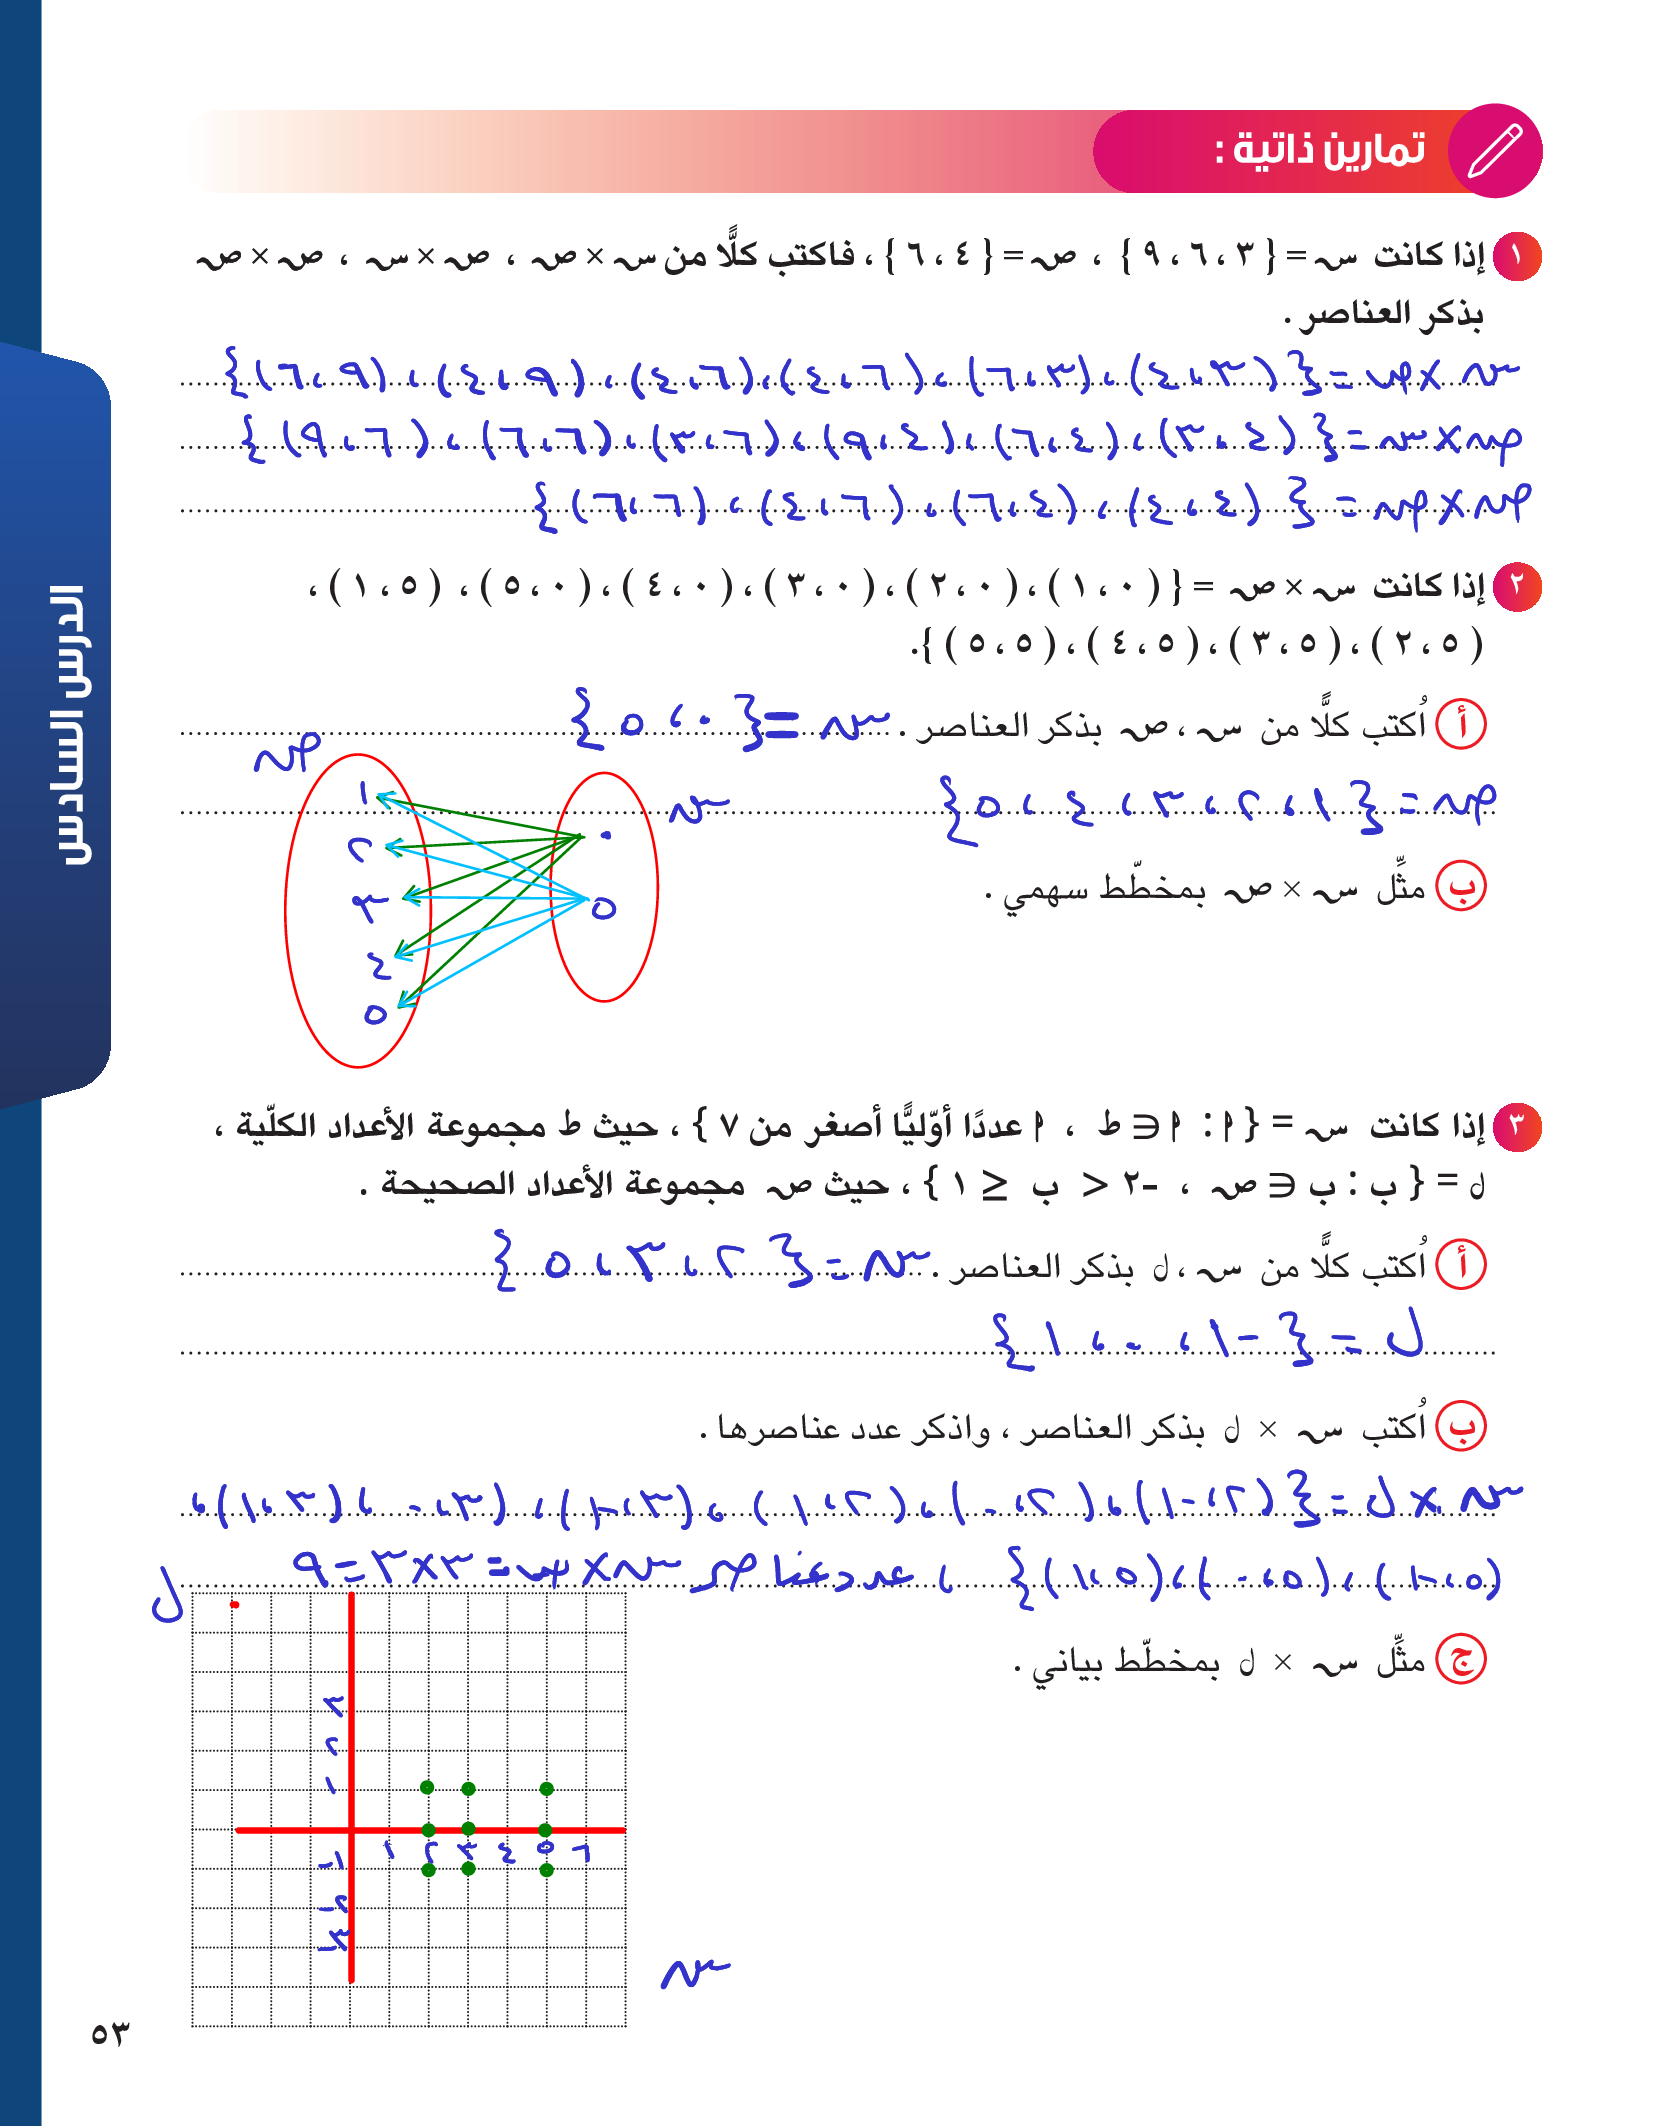 تمارين ذاتية :
١ إذا كانت س = { ٣ ، ٦ ، ٩ } ، ص = { ٤ ، ٦ } ، فاكتب كلًّا من س × ص ، ص × س ، ص × ص
بذكر العناصر .
س × ص = { (٣ ، ٤) ، (٣ ، ٦) ، (٦ ، ٤) ، (٦ ، ٤) ، (٩ ، ٤) ، (٩ ، ٦) }
ص × س = { (٤ ، ٣) ، (٤ ، ٦) ، (٤ ، ٩) ، (٦ ، ٣) ، (٦ ، ٦) ، (٦ ، ٩) }
ص × ص = { (٤ ، ٤) ، (٤ ، ٦) ، (٦ ، ٤) ، (٦ ، ٦) }
٢ إذا كانت س × ص = { ( ٠ ، ١ ) ، ( ٠ ، ٢ ) ، ( ٠ ، ٣ ) ، ( ٠ ، ٤ ) ، ( ٠ ، ٥ ) ، ( ٥ ، ١ ) ،
( ٥ ، ٢ ) ، ( ٥ ، ٣ ) ، ( ٥ ، ٤ ) ، ( ٥ ، ٥ ) }.
أ اُكتب كلًّا من س ، ص بذكر العناصر . س = { ٠ ، ٥ }
ص = { ١ ، ٢ ، ٣ ، ٤ ، ٥ }
ب مثِّل س × ص بمخطّط سهمي .
س
٠
٥
ص
١
٢
٣
٤
٥
٣ إذا كانت س = { أ : أ ∈ ط ، أ عددًا أوّليًّا أصغر من ٧ } ، حيث ط مجموعة الأعداد الكلّية ،
ل = { ب : ب ∈ ص ، -٢ < ب ≤ ١ } ، حيث ص مجموعة الأعداد الصحيحة .
أ اُكتب كلًّا من س ، ل بذكر العناصر . س = { ٢ ، ٣ ، ٥ }
ل = { -١ ، ٠ ، ١ }
ب اُكتب س × ل بذكر العناصر ، واذكر عدد عناصرها .
س × ل = { (٢ ، -١) ، (٢ ، ٠) ، (٢ ، ١) ، (٣ ، -١) ، (٣ ، ٠) ، (٣ ، ١) ،
(٥ ، -١) ، (٥ ، ٠) ، (٥ ، ١) } ، عدد عناصر س × ص = ٣ × ٣ = ٩
ج مثِّل س × ل بمخطّط بياني .
ل
٣
٢
١
١ ٢ ٣ ٤ ٥ ٦
-١
-٢
-٣
س
الدرس السادس
٥٣